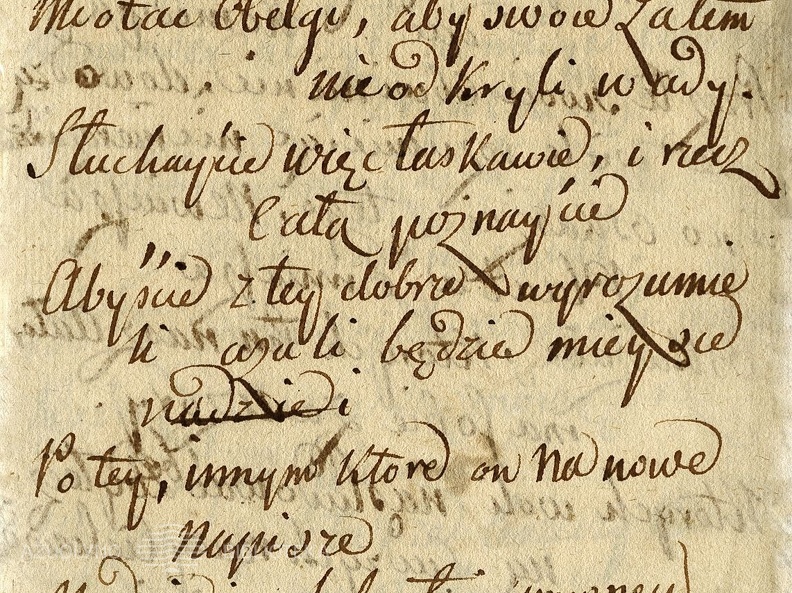 Miotać Obelgi, aby swoie Zatem
nie odkryli wady.
Słuchayćie więc łaskawie, i rzecz
Całą poznayćie
Abyście z tey dobrze wyrozumie
li azali będzie mieysce
nadziei
Po tey, innym które on na nowe
napisze